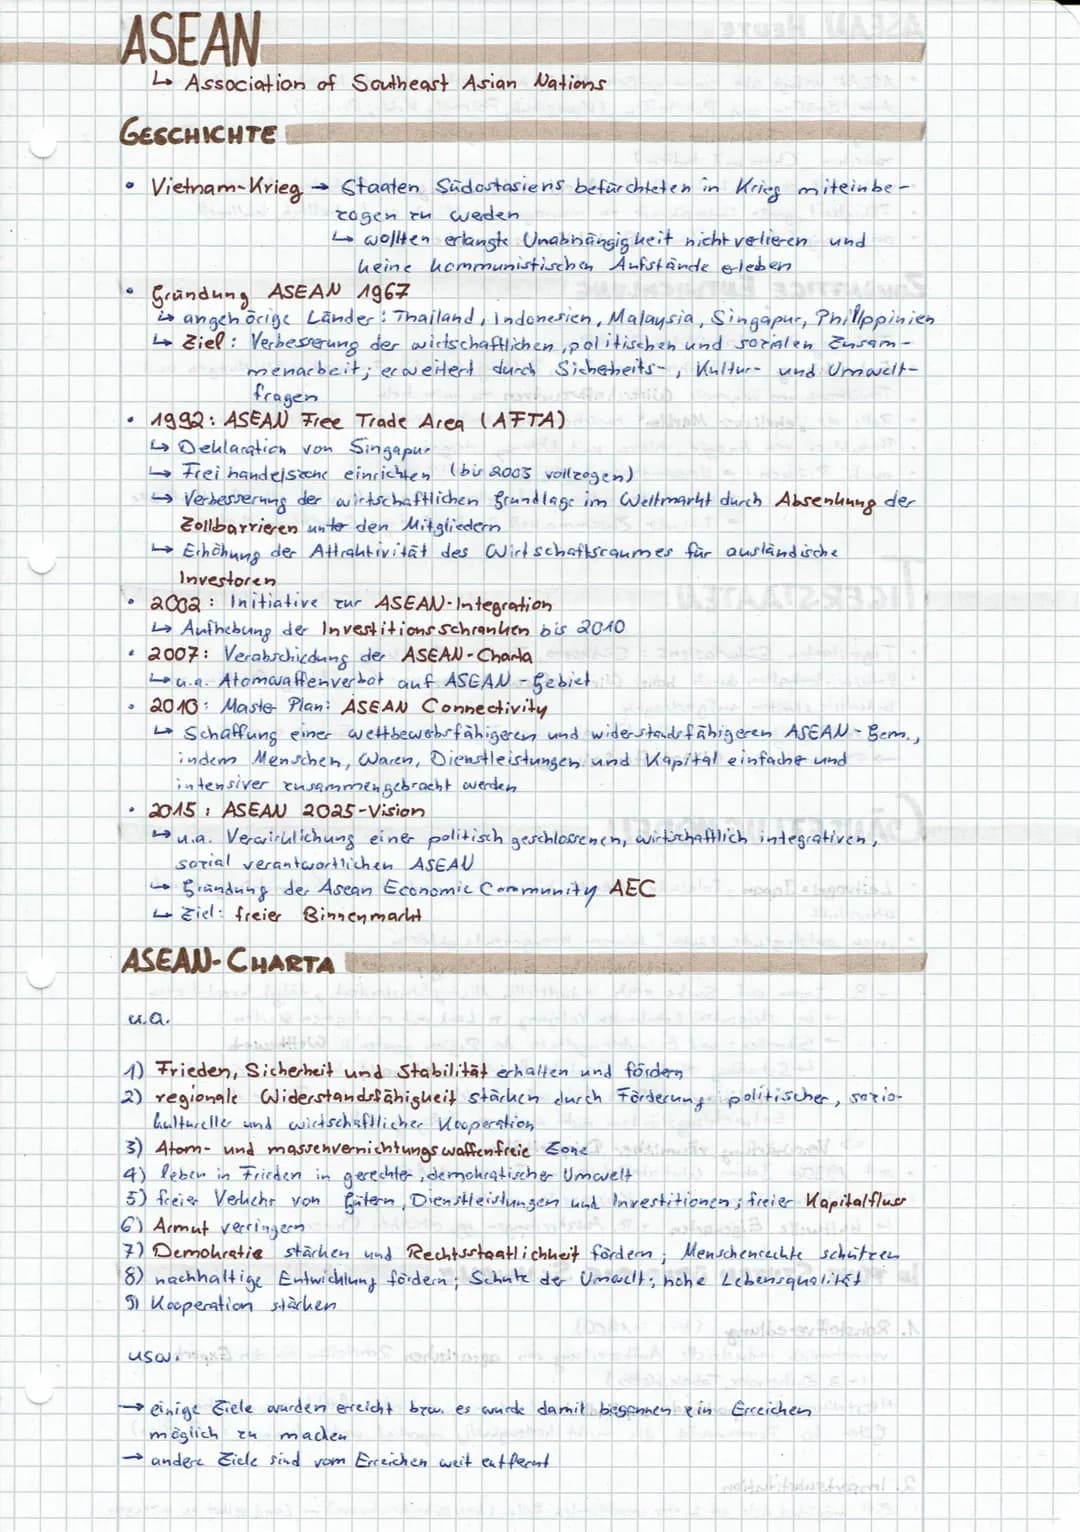 ASEAN
↳ Association of Southeast Asian Nations
GESCHICHTE
• Vietnam-Krieg → Staaten Südostasiens befürchteten in Krieg miteinbe-
zogen zu werden
↳ wollten erlangte Unabhängigkeit nicht verlieren und
keine kommunistischen Aufstände erleben
• Gründung ASEAN 1967
↳ angehörige Länder: Thailand, Indonesien, Malaysia, Singapur, Phillppinien
↳ Ziel: Verbesserung der wirtschaftlichen, politischen und sozialen Zusam-
menarbeit; erweitert durch Sicherheits-, Kultur- und Umwelt-
fragen
• 1992: ASEAN Free Trade Area (AFTA)
↳ Deklaration von Singapur
↳ Freihandelszone einrichten (bis 2003 vollzogen)
↳ Verbesserung der wirtschaftlichen Grundlage im Weltmarkt durch Absenkung der
Zollbarrieren unter den Mitgliedern
↳ Erhöhung der Attraktivität des Wirtschaftsraumes für ausländische
Investoren
• 2002: Initiative zur ASEAN-Integration
↳ Aufhebung der Investitionsschranken bis 2010
• 2007: Verabschiedung der ASEAN-Charta
↳ u.a. Atomwaffenverbot auf ASEAN-Gebiet
• 2010: Master Plan: ASEAN Connectivity
↳ Schaffung einer wettbewerbsfähigeren und widerstandsfähigeren ASEAN-Gem.,
indem Menschen, Waren, Dienstleistungen und Kapital einfacher und
intensiver zusammengebracht werden
• 2015: ASEAN 2025-Vision
↳ u.a. Verwirklichung einer politisch geschlossenen, wirtschaftlich integrativen,
sozial verantwortlichen ASEAN
↳ Gründung der Asean Economic Community AEC
↳ Ziel: freier Binnenmarkt
ASEAN-CHARTA
u.a.
1) Frieden, Sicherheit und Stabilität erhalten und fördern
2) regionale Widerstandsfähigkeit stärken durch Förderung politischer, sozio-
kultureller und wirtschaftlicher Kooperation
3) Atom- und massenvernichtungswaffenfreie Zone
4) leben in Frieden in gerechter, demokratischer Umwelt
5) freier Verkehr von Gütern, Dienstleistungen und Investitionen; freier Kapitalfluss
6) Armut verringern
7) Demokratie stärken und Rechtsstaatlichkeit fördern; Menschenrechte schützen
8) nachhaltige Entwicklung fördern; Schutz der Umwelt; hohe Lebensqualität
9) Kooperation stärken
usw.
→ einige Ziele wurden erreicht bzw. es wurde damit begonnen ein Erreichen
möglich zu machen
→ andere Ziele sind vom Erreichen weit entfernt